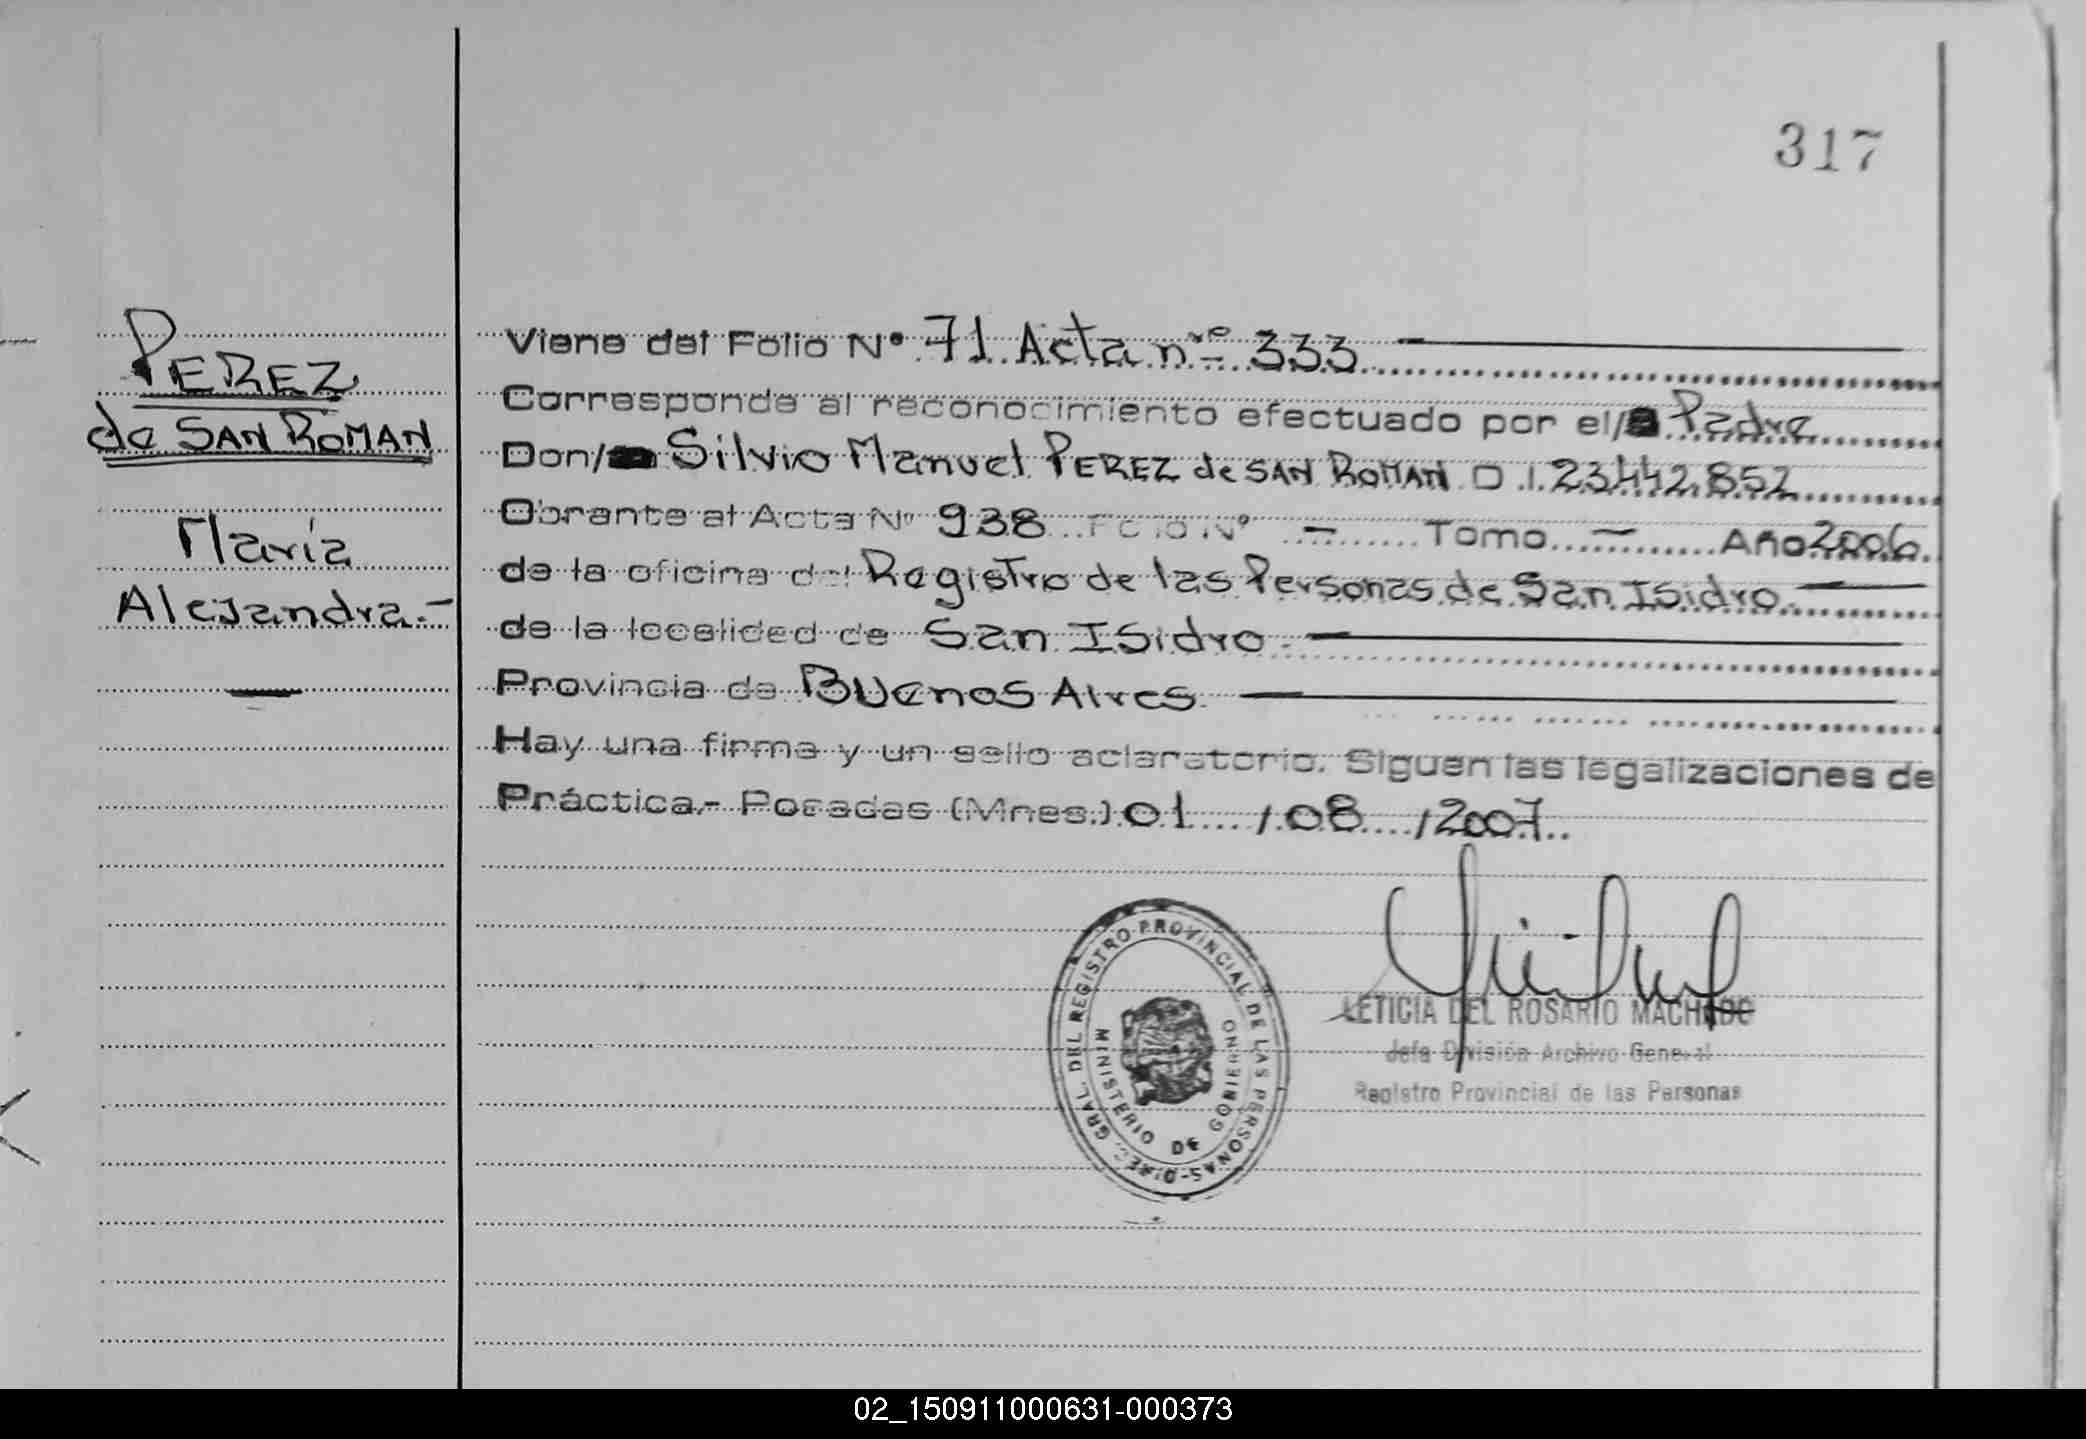 317
PEREZ
de SAN ROMAN
María
Alejandra.-
Viene del Folio Nº 71 Acta nº 333
Corresponde al reconocimiento efectuado por el/ Padre
Don/ Silvio Manuel PEREZ de SAN ROMAN D.I. 23.442.852
Obrante al Acta Nº 938 Folio Nº - Tomo - Año 2006
de la oficina del Registro de las Personas de San Isidro
de la localidad de San Isidro
Provincia de Buenos Aires
Hay una firma y un sello aclaratorio. Siguen las legalizaciones de
Práctica.- Posadas (Mnes.) 01 / 08 / 2007
LETICIA DEL ROSARIO MACHADO
Jefa División Archivo General
Registro Provincial de las Personas
GRAL. DEL REGISTRO PROVINCIAL DE LAS PERSONAS-DIREC.
MINISTERIO DE GOBIERNO
02_150911000631-000373